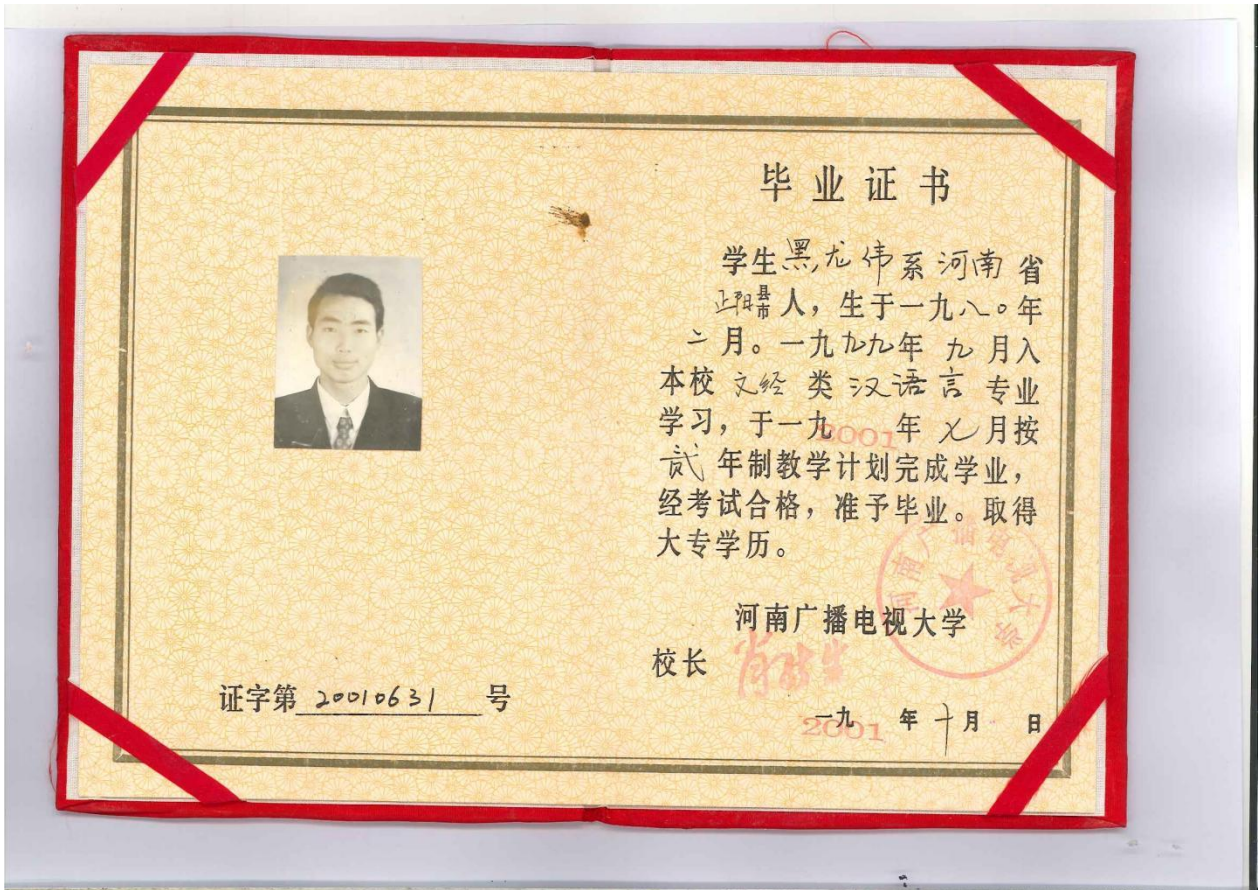 毕业证书
学生黑龙伟系河南省
正阳县市人，生于一九八〇年
二月。一九九九年九月入
本校文经类汉语言专业
学习，于一九2001年七月按
贰年制教学计划完成学业，
经考试合格，准予毕业。取得
大专学历。
河南广播电视大学
校长
一九2001年十月 日
河南广播电视大学
证字第20010631号